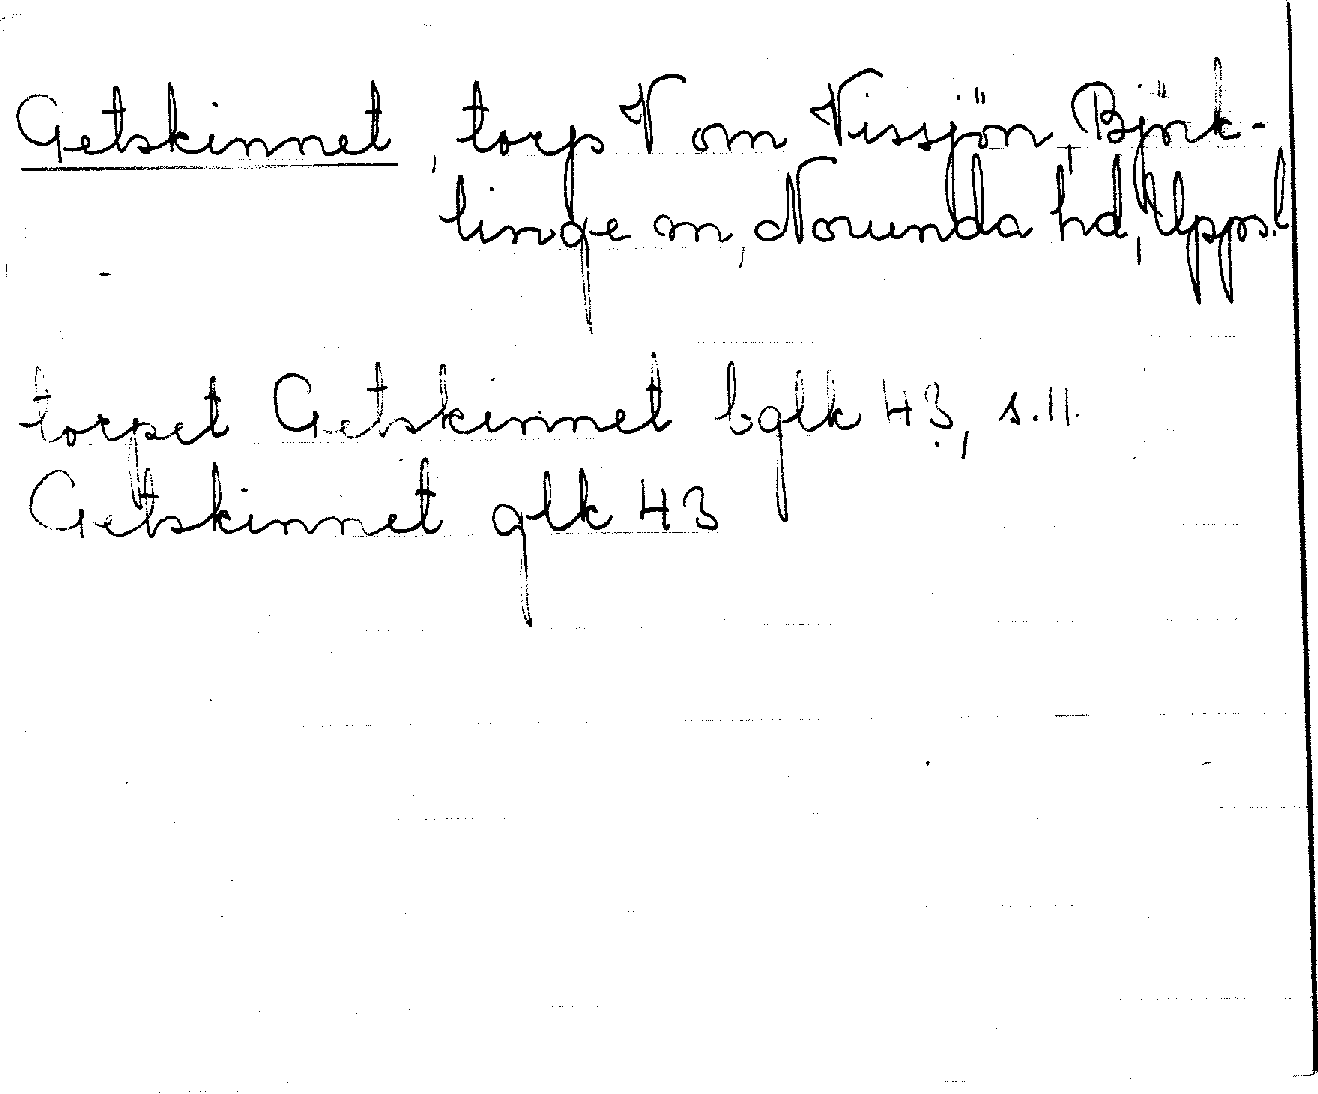 Getskinnet, torp V om Vissjön, Björk-
linge sn, Norunda hd, Upps.l
torpet Getskinnet bglk 43, s.11.
Getskinnet glk 43